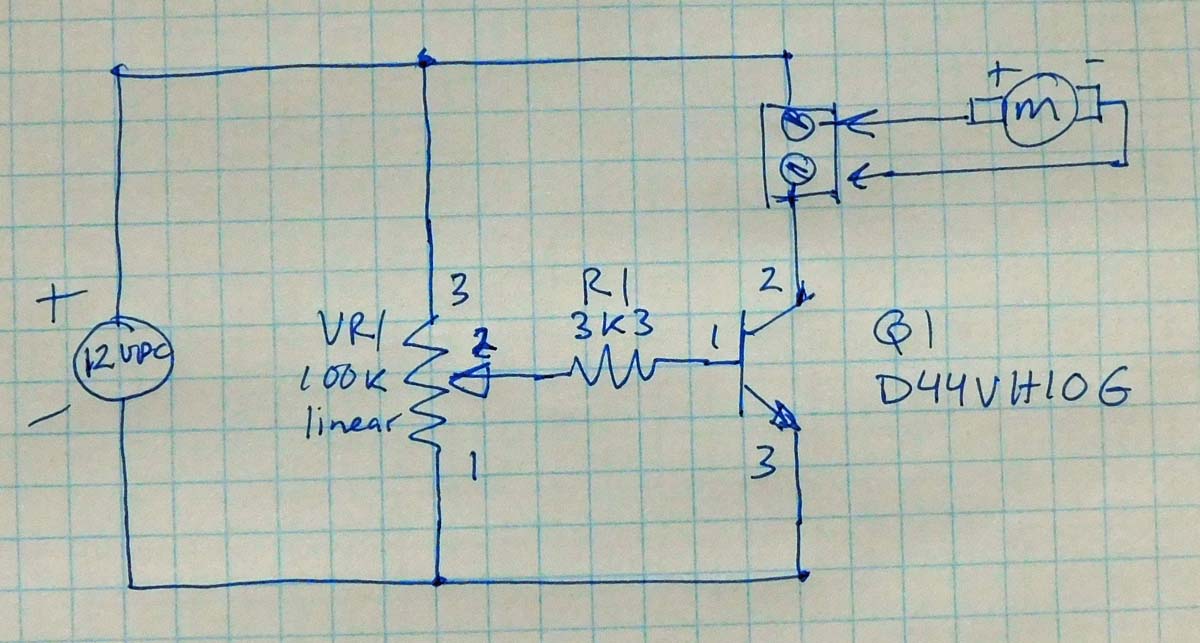 + -
m
+
12VDC
-
VR1
100K
linear
3
2
1
R1
3K3
2
1
3
Q1
D44VH10G